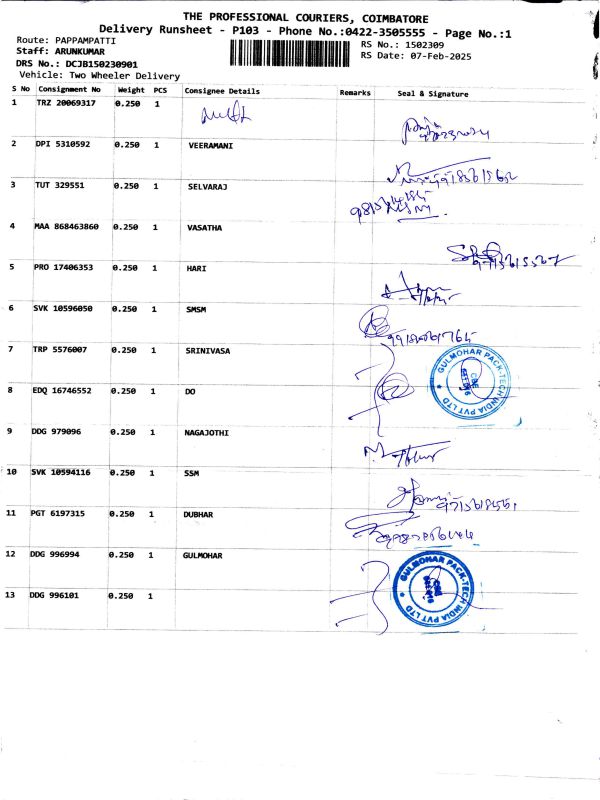 THE PROFESSIONAL COURIERS, COIMBATORE
Delivery Runsheet - P103 - Phone No.:0422-3505555 - Page No.:1
Route: PAPPAMPATTI
RS No.: 1502309
Staff: ARUNKUMAR
RS Date: 07-Feb-2025
DRS No.: DCJB150230901
Vehicle: Two Wheeler Delivery
S No Consignment No Weight PCS Consignee Details Remarks Seal & Signature
1 TRZ 20069317 0.250 1
2 DPI 5310592 0.250 1 VEERAMANI
3 TUT 329551 0.250 1 SELVARAJ
4 MAA 868463860 0.250 1 VASATHA
5 PRO 17406353 0.250 1 HARI
6 SVK 10596050 0.250 1 SMSM
7 TRP 5576007 0.250 1 SRINIVASA
GULMOHAR PACK-TECH INDIA PVT LTD
8 EDQ 16746552 0.250 1 DO
9 DDG 979096 0.250 1 NAGAJOTHI
10 SVK 10594116 0.250 1 SSM
11 PGT 6197315 0.250 1 DUBHAR
12 DDG 996994 0.250 1 GULMOHAR
GULMOHAR PACK-TECH INDIA PVT LTD
13 DDG 996101 0.250 1